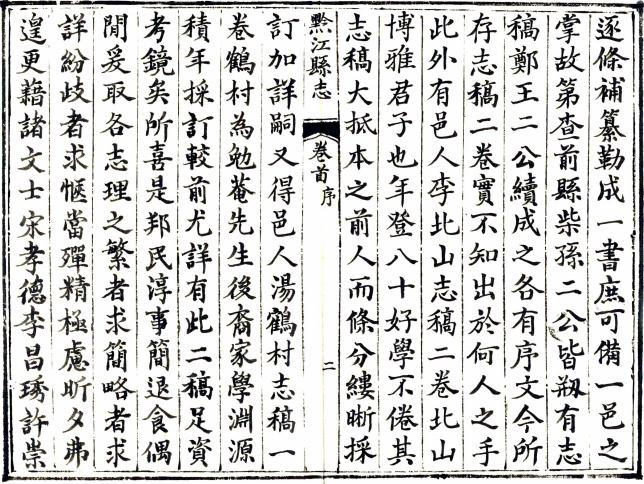 逐條補纂勒成一書庶可備一邑之
掌故第查前縣柴孫二公皆剏有志
稿鄭王二公續成之各有序文今所
存志稿二卷實不知出於何人之手
此外有邑人李北山志稿二卷北山
博雅君子也年登八十好學不倦其
志稿大抵本之前人而條分縷晰採
黔江縣志 卷首 序 二
訂加詳嗣又得邑人湯鶴村志稿一
卷鶴村為勉菴先生後裔家學淵源
積年採訂較前尤詳有此二稿足資
考鏡矣所喜是邦民淳事簡退食偶
閒爰取各志理之繁者求簡略者求
詳紛歧者求愜當殫精極慮昕夕弗
遑更藉諸文士宋孝德李昌琇許崇